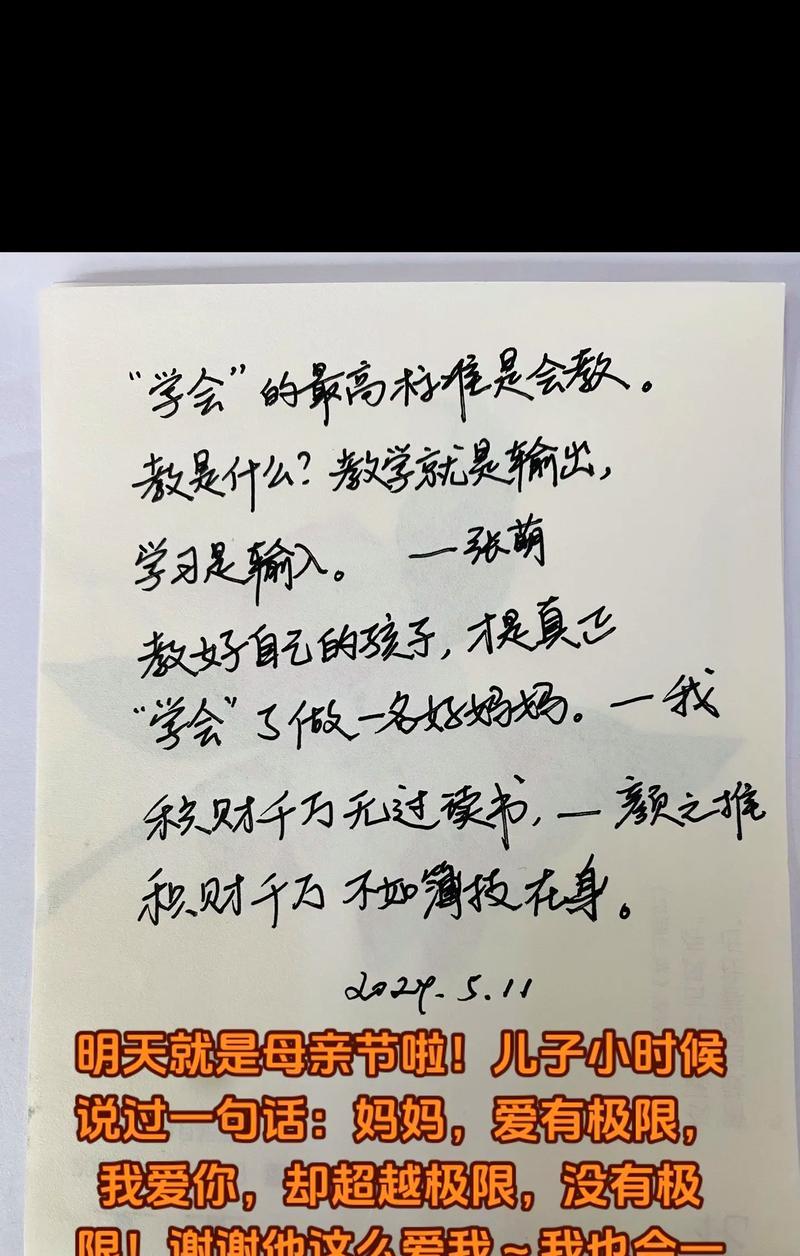 “学会”的最高标准是会教。
教是什么？教学就是输出，
学习是输入。 —张萌
教好自己的孩子，才是真正
“学会”了做一名好妈妈。—我
积财千万无过读书，—颜之推
积财千万不如薄技在身。
2024.5.11
明天就是母亲节啦！儿子小时候
说过一句话：妈妈，爱有极限，
我爱你，却超越极限，没有极
限！谢谢他这么爱我~我也会一